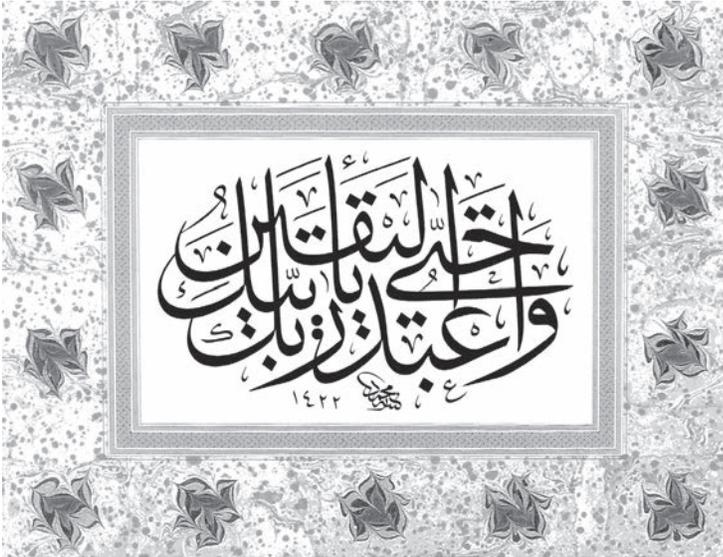 واعبد ربك حتى يأتيك اليقين
١٤٢٢